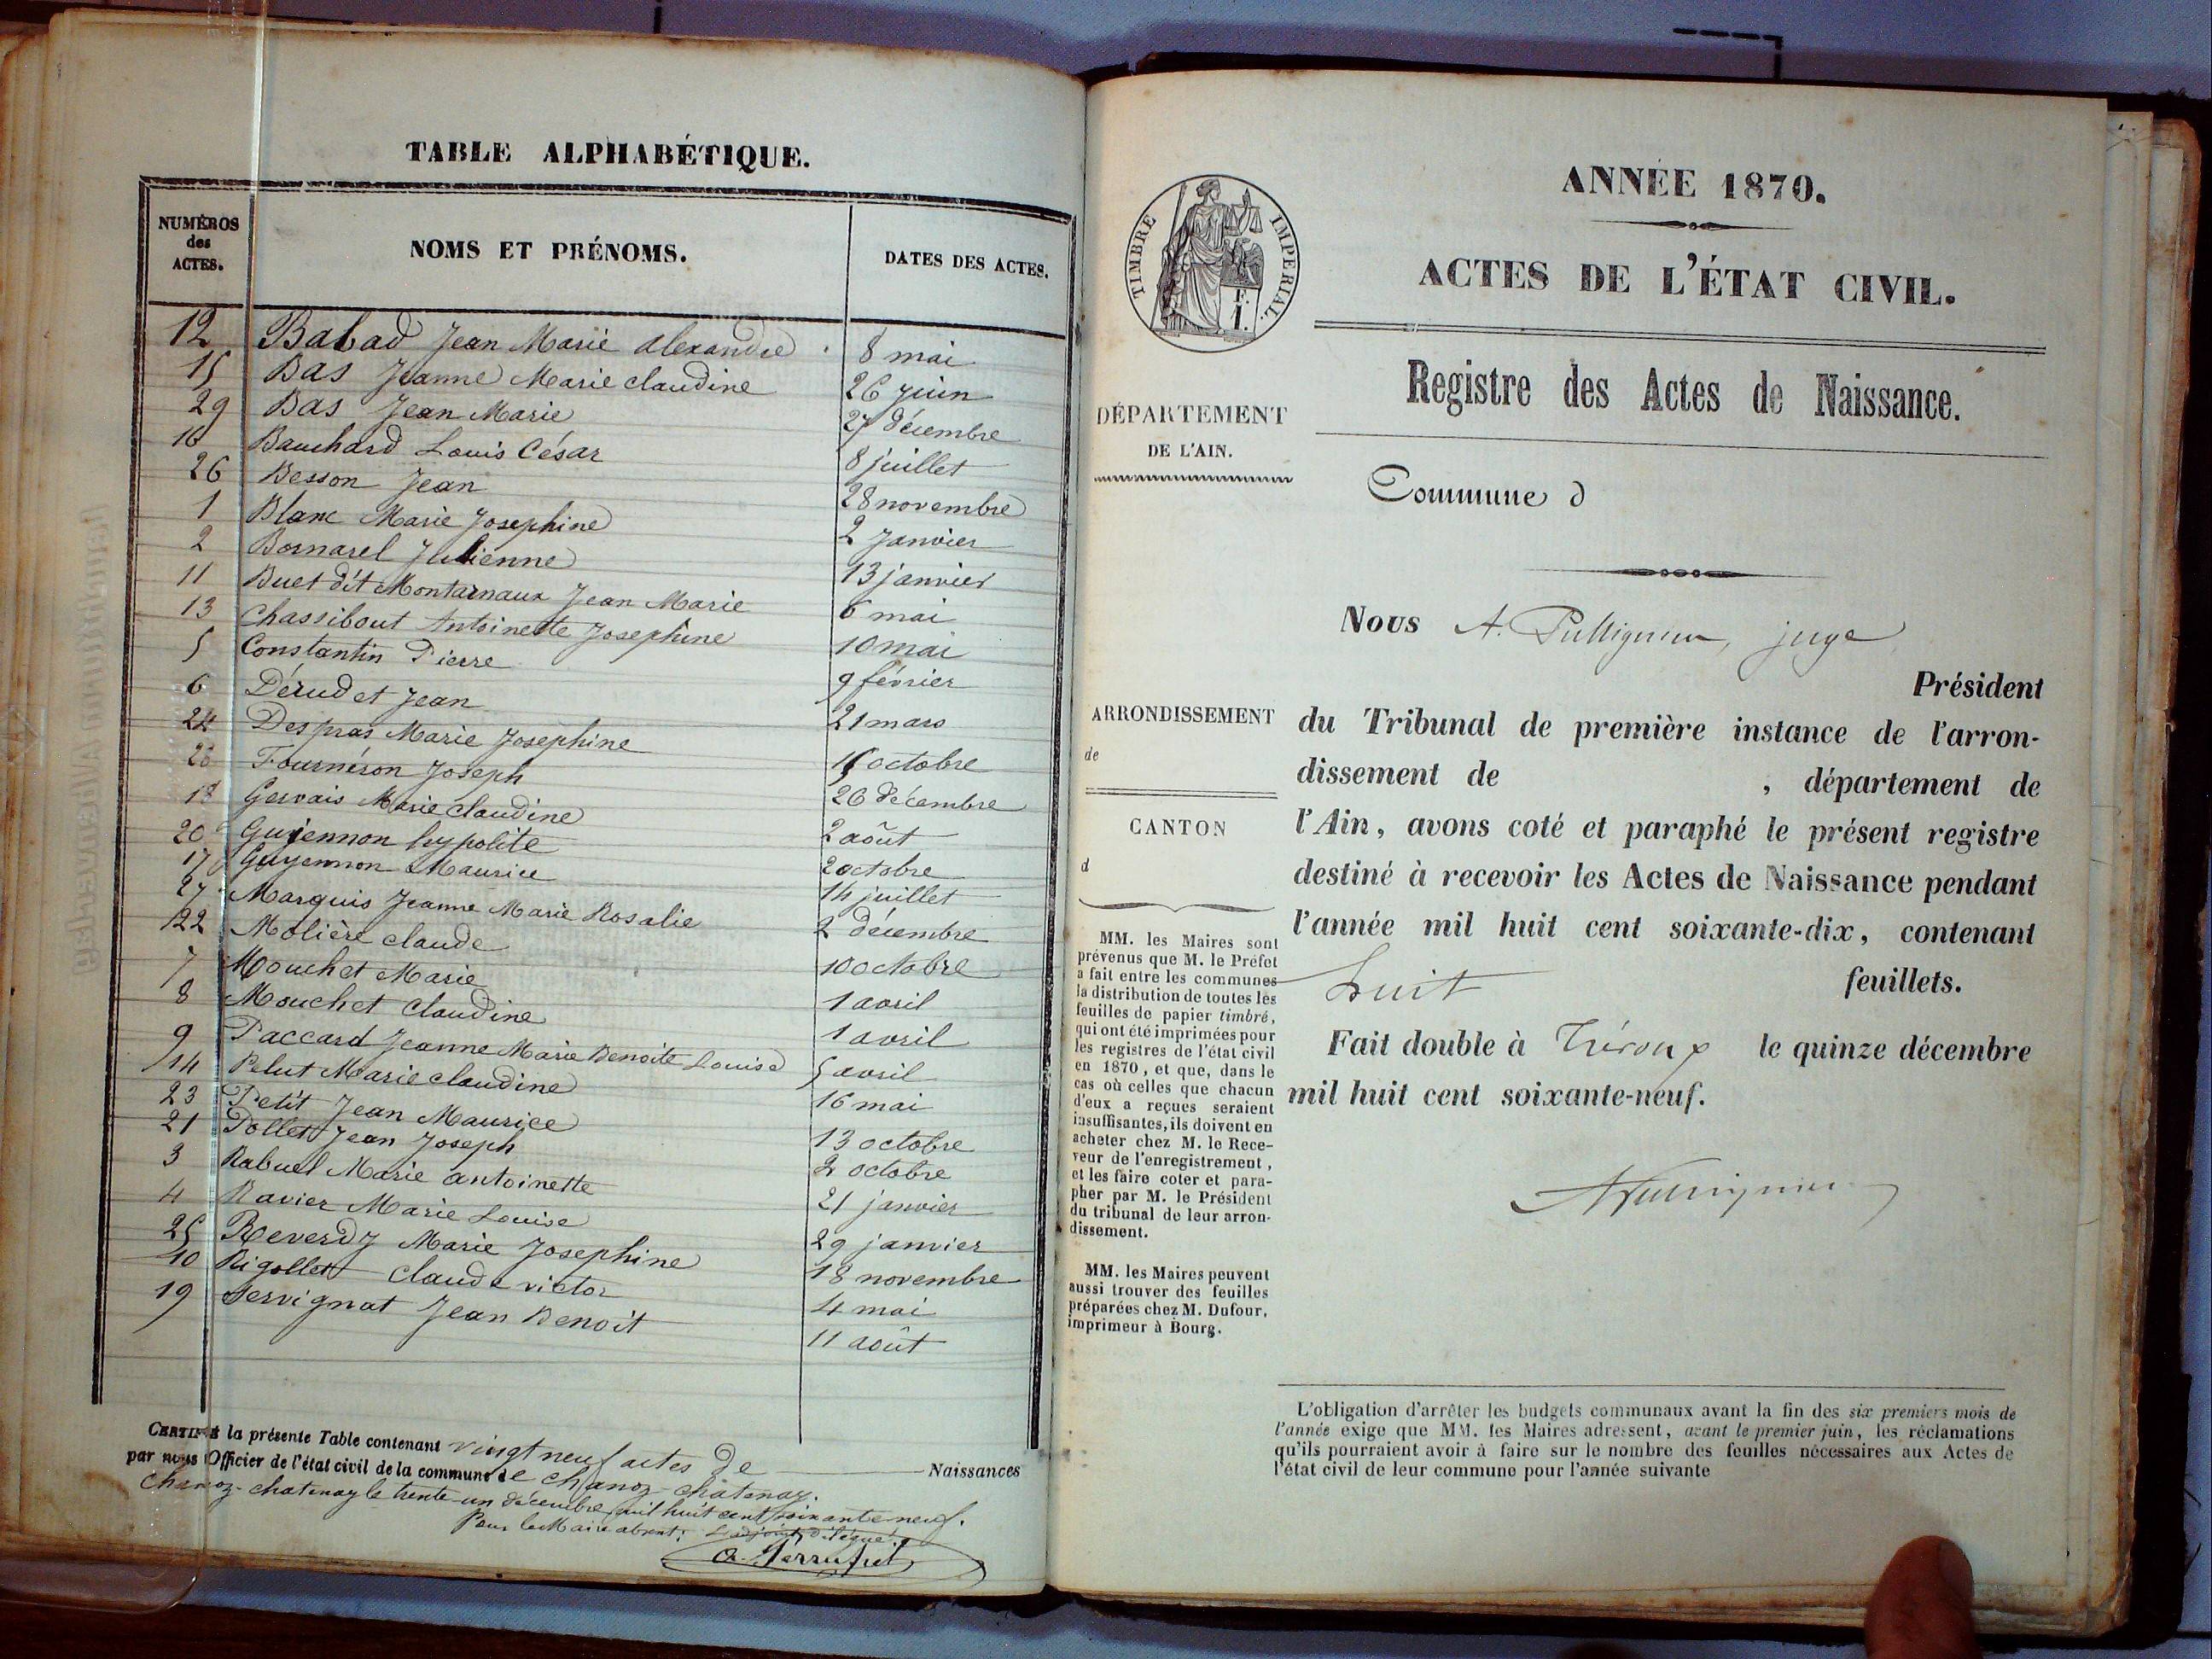 TABLE ALPHABÉTIQUE.
NUMÉROS des ACTES.
NOMS ET PRÉNOMS.
DATES DES ACTES.
12 Babad Jean Marie alexandre 8 mai
15 Bas Jeanne Marie claudine 26 juin
29 Bas Jean Marie 27 décembre
16 Bauchard Louis César 8 juillet
26 Besson Jean 28 novembre
1 Blanc Marie Josephine 2 Janvier
2 Bornarel Julienne 13 janvier
11 Buet dit Montarnaux Jean Marie 6 mai
13 Chassibout Antoinette Josephine 10 mai
5 Constantin Pierre 9 février
6 Dérudet Jean 21 mars
24 Despras Marie Josephine octobre
28 Fournéron Joseph 26 décembre
18 Gervais Marie claudine 2 août
20 Guyennon hypolite 2 octobre
17 Guyennon Maurice 14 juillet
27 Marquis Jeanne Marie Rosalie 2 décembre
22 Molière claude 10 octobre
7 Mouchet Marie 1 avril
8 Mouchet Claudine 1 avril
9 Paccard Jeanne Marie Benoite Louise 5 avril
14 Pelut Marie claudine 16 mai
23 Petit Jean Maurice 13 octobre
21 Pollet Jean Joseph 2 octobre
3 Rabuel Marie antoinette 21 janvier
4 Ravier Marie Louise 29 janvier
25 Reverdy Marie Josephine 18 novembre
10 Rigollet Claude victor 4 mai
19 Servignat Jean Benoit 11 août
CERTIFIÉ la présente Table contenant vingt neuf actes de Naissances
par nous Officier de l'état civil de la commune de chanoz-chatenay.
Chanoz-chatenay le trente-un décembre mil huit cent soixante neuf.
Pour le Maire absent: L'adjoint délégué.
ANNÉE 1870.
TIMBRE IMPERIAL.
F.
1.
ACTES DE L'ÉTAT CIVIL.
Registre des Actes de Naissance.
DÉPARTEMENT
DE L'AIN.
Commune d
Nous A. , juge
Président
ARRONDISSEMENT
de
du Tribunal de première instance de l'arron-
dissement de , département de
CANTON
d
l'Ain, avons coté et paraphé le présent registre
destiné à recevoir les Actes de Naissance pendant
l'année mil huit cent soixante-dix, contenant
huit feuillets.
Fait double à Trévoux le quinze décembre
mil huit cent soixante-neuf.
MM. les Maires sont
prévenus que M. le Préfet
a fait entre les communes
la distribution de toutes les
feuilles de papier timbré,
qui ont été imprimées pour
les registres de l'état civil
en 1870, et que, dans le
cas où celles que chacun
d'eux a reçues seraient
insuffisantes, ils doivent en
acheter chez M. le Rece-
veur de l'enregistrement,
et les faire coter et para-
pher par M. le Président
du tribunal de leur arron-
dissement.
MM. les Maires peuvent
aussi trouver des feuilles
préparées chez M. Dufour,
imprimeur à Bourg.
L'obligation d'arrêter les budgets communaux avant la fin des six premiers mois de
l'année exige que MM. les Maires adressent, avant le premier juin, les réclamations
qu'ils pourraient avoir à faire sur le nombre des feuilles nécessaires aux Actes de
l'état civil de leur commune pour l'année suivante